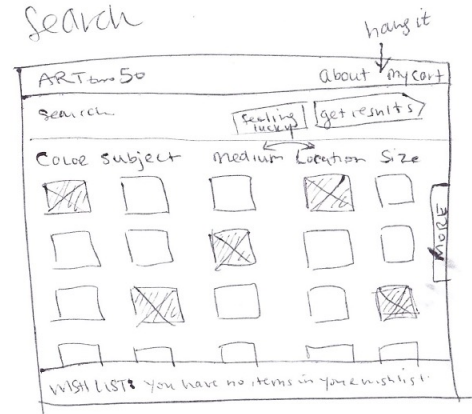 Search
hang it
ARTtwo50 about my cart
search feeling lucky get results
Color Subject Medium Location Size
MORE
WISHLIST: You have no items in your wishlist.